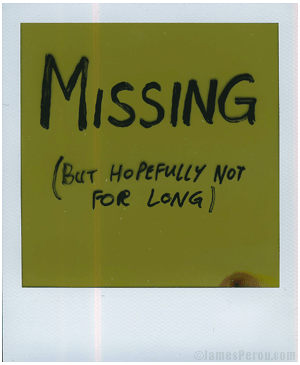 MISSING
(BUT HOPEFULLY NOT
FOR LONG)
©JamesPerou.com